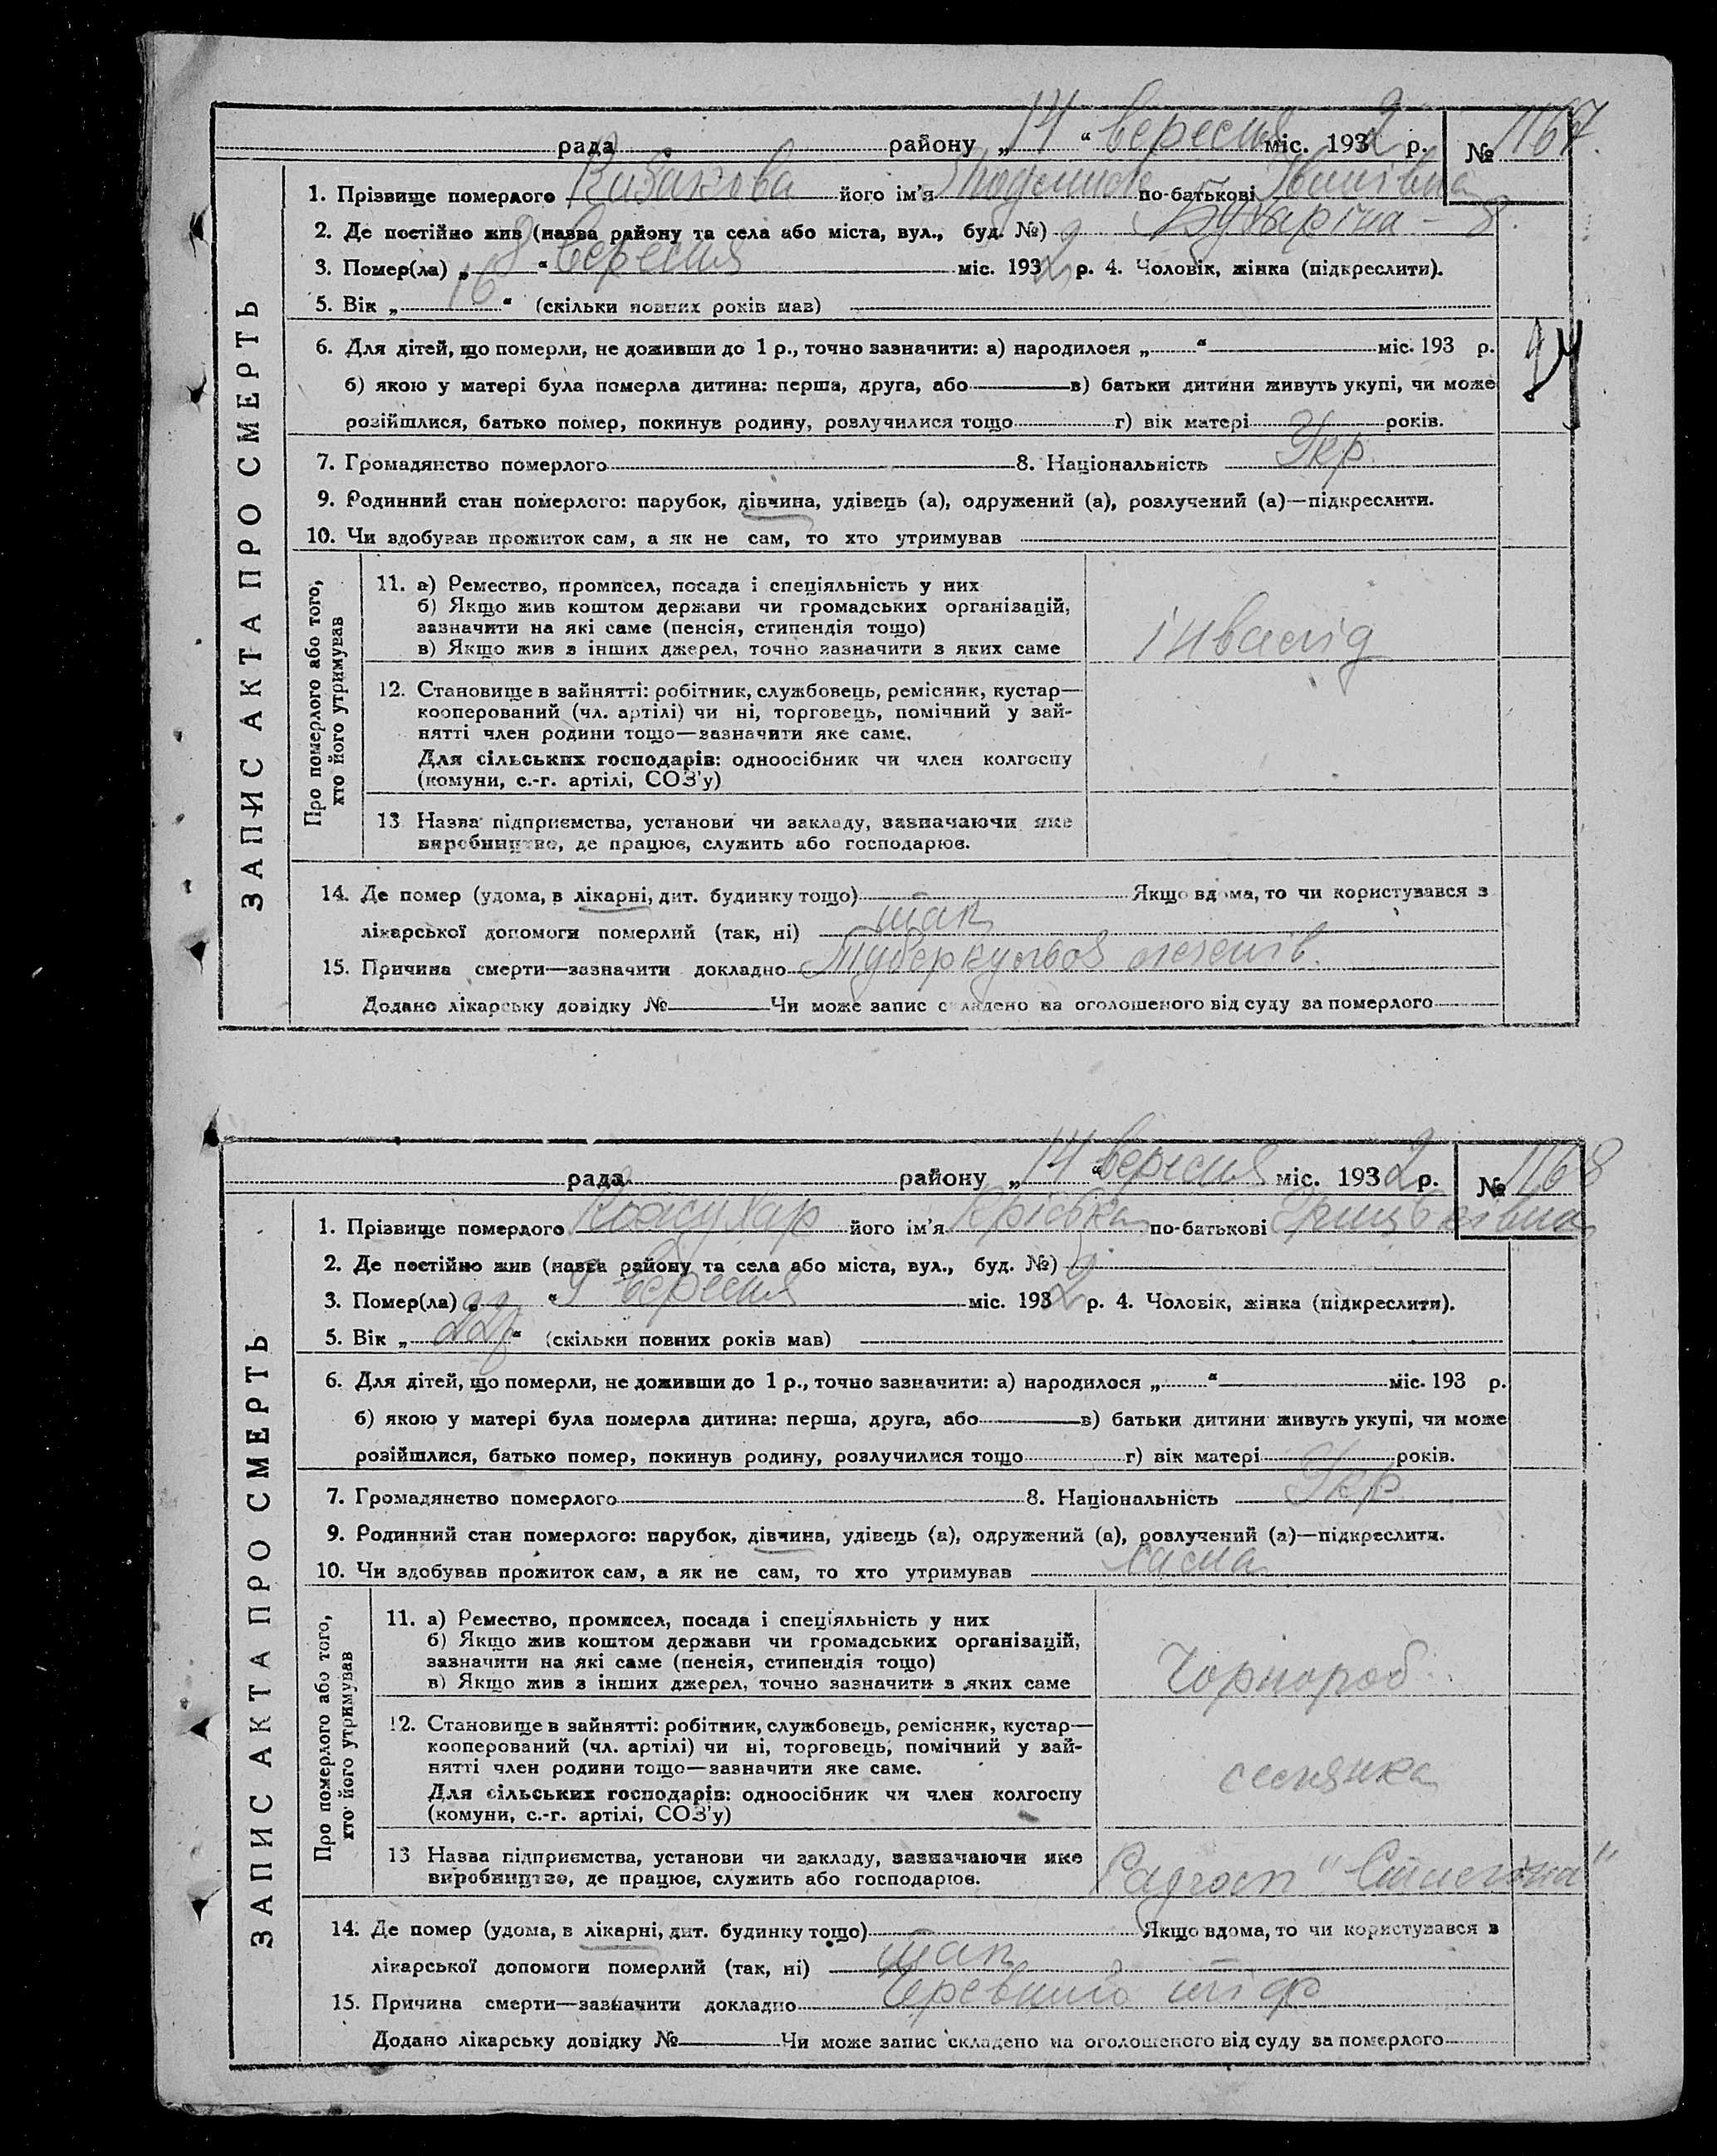 рада району „ 14 “ вересня міс. 1932 р. № 1167.
1. Прізвище померлого його ім'я по-батькові Іванівна
2. Де постійно жив (назва району та села або міста, вул., буд. №) Бухаріна – 8.
3. Помер(ла) „ 8 “ вересня міс. 1932 р. 4. Чоловік, жінка (підкреслити).
5. Вік „ 16 “ (скільки повних років мав)
6. Для дітей, що померли, не доживши до 1 р., точно зазначити: а) народилося „ “ міс. 193 р.
б) якою у матері була померла дитина: перша, друга, або в) батьки дитини живуть укупі, чи може
розійшлися, батько помер, покинув родину, розлучилися тощо г) вік матері років.
7. Громадянство померлого 8. Національність Укр.
9. Родинний стан померлого: парубок, дівчина, удівець (а), одружений (а), розлучений (а)—підкреслити.
10. Чи здобував прожиток сам, а як не сам, то хто утримував
ЗАПИС АКТА ПРО СМЕРТЬ
Про померлого або того,
хто його утримував
11. а) Ремество, промисел, посада і спеціяльність у них
б) Якщо жив коштом держави чи громадських організацій,
зазначити на які саме (пенсія, стипендія тощо)
в) Якщо жив з інших джерел, точно зазначити з яких саме
інвалід
12. Становище в зайнятті: робітник, службовець, ремісник, кустар—
кооперований (чл. артілі) чи ні, торговець, помічний у зай-
нятті член родини тощо—зазначити яке саме.
Для сільських господарів: одноосібник чи член колгоспу
(комуни, с.-г. артілі, СОЗ'у)
13 Назва підприємства, установи чи закладу, зазначаючи яке
виробництво, де працює, служить або господарює.
14. Де помер (удома, в лікарні, дит. будинку тощо) Якщо вдома, то чи користувався з
лікарської допомоги померлий (так, ні) так
15. Причина смерти—зазначити докладно Туберкульоз легенів.
Додано лікарську довідку № Чи може запис складено на оголошеного від суду за померлого
рада району „ 14 “ вересня міс. 1932 р. № 1168
1. Прізвище померлого його ім'я по-батькові
2. Де постійно жив (назва району та села або міста, вул., буд. №)
3. Помер(ла) „ “ 9 вересня міс. 1932 р. 4. Чоловік, жінка (підкреслити).
5. Вік „ 22 р “ (скільки повних років мав)
6. Для дітей, що померли, не доживши до 1 р., точно зазначити: а) народилося „ “ міс. 193 р.
б) якою у матері була померла дитина: перша, друга, або в) батьки дитини живуть укупі, чи може
розійшлися, батько помер, покинув родину, розлучилися тощо г) вік матері років.
7. Громадянство померлого 8. Національність Укр
9. Родинний стан померлого: парубок, дівчина, удівець (а), одружений (а), розлучений (а)—підкреслити.
10. Чи здобував прожиток сам, а як не сам, то хто утримував сама
ЗАПИС АКТА ПРО СМЕРТЬ
Про померлого або того,
хто його утримував
11. а) Ремество, промисел, посада і спеціяльність у них
б) Якщо жив коштом держави чи громадських організацій,
зазначити на які саме (пенсія, стипендія тощо)
в) Якщо жив з інших джерел, точно зазначити з яких саме
Чорнороб
12. Становище в зайнятті: робітник, службовець, ремісник, кустар—
кооперований (чл. артілі) чи ні, торговець, помічний у зай-
нятті член родини тощо—зазначити яке саме.
Для сільських господарів: одноосібник чи член колгоспу
(комуни, с.-г. артілі, СОЗ'у)
селянка
13 Назва підприємства, установи чи закладу, зазначаючи яке
виробництво, де працює, служить або господарює.
Радгосп "Сталіна"
14. Де помер (удома, в лікарні, дит. будинку тощо) Якщо вдома, то чи користувався з
лікарської допомоги померлий (так, ні) так
15. Причина смерти—зазначити докладно Черевний тіф
Додано лікарську довідку № Чи може запис складено на оголошеного від суду за померлого